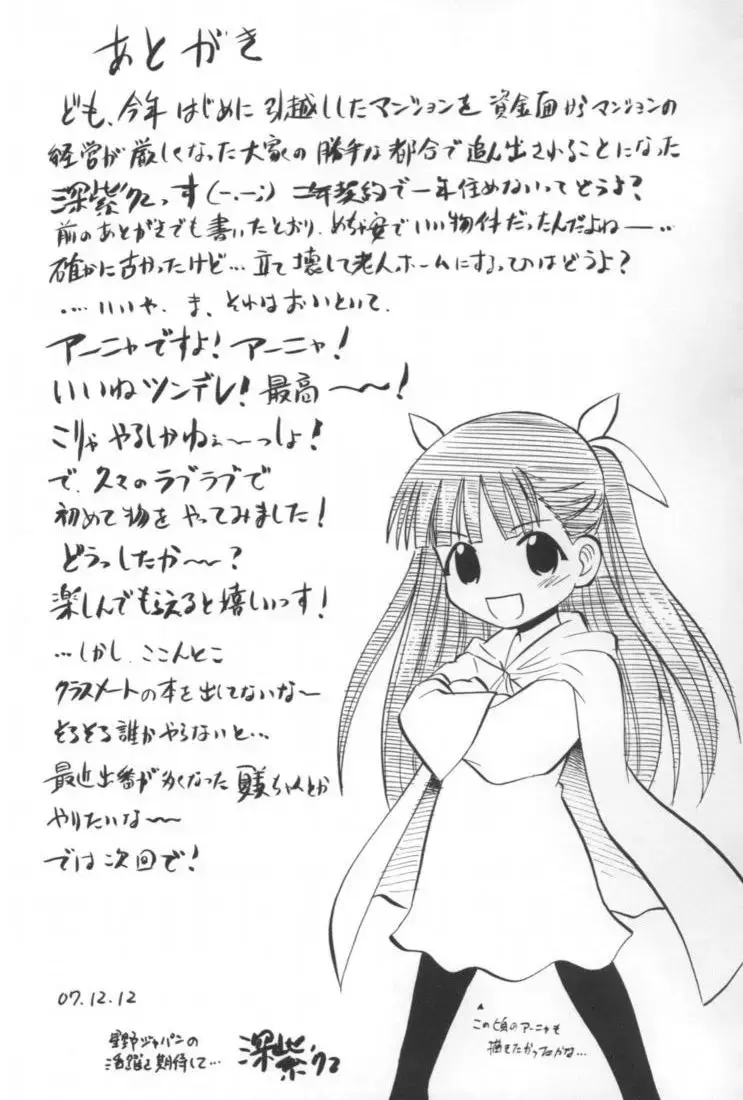 あとがき
ども、今年はじめに引越ししたマンションを資金面からマンションの
経営が厳しくなった大家の勝手な都合で追ん出されることになった
深紫クロっす(－.－;) 二年契約で一年住めないってどうよ?
前のあとがきでも書いたとおり、めちゃ安でいい物件だったんだよねー…
確かに古かったけど…立て壊して老人ホームにするってのはどうよ?
……いいや、ま、それはおいといて、
アーニャですよ! アーニャ!
いいねツンデレ! 最高～～!
こりゃやるしかねぇーっしょ!
で、久々のラブラブで
初めて物をやってみました!
どうっしたか～～?
楽しんでもらえると嬉しいっす!
…しかし、ここんとこ
クラスメートの本を出してないな～
そろそろ誰かやらないと…
最近出番が多くなった ちゃんとか
やりたいな～～
では次回で!
07.12.12
星野ジャパンの
活躍を期待して…
深紫クロ
この頃のアーニャも
描きたかったかな…